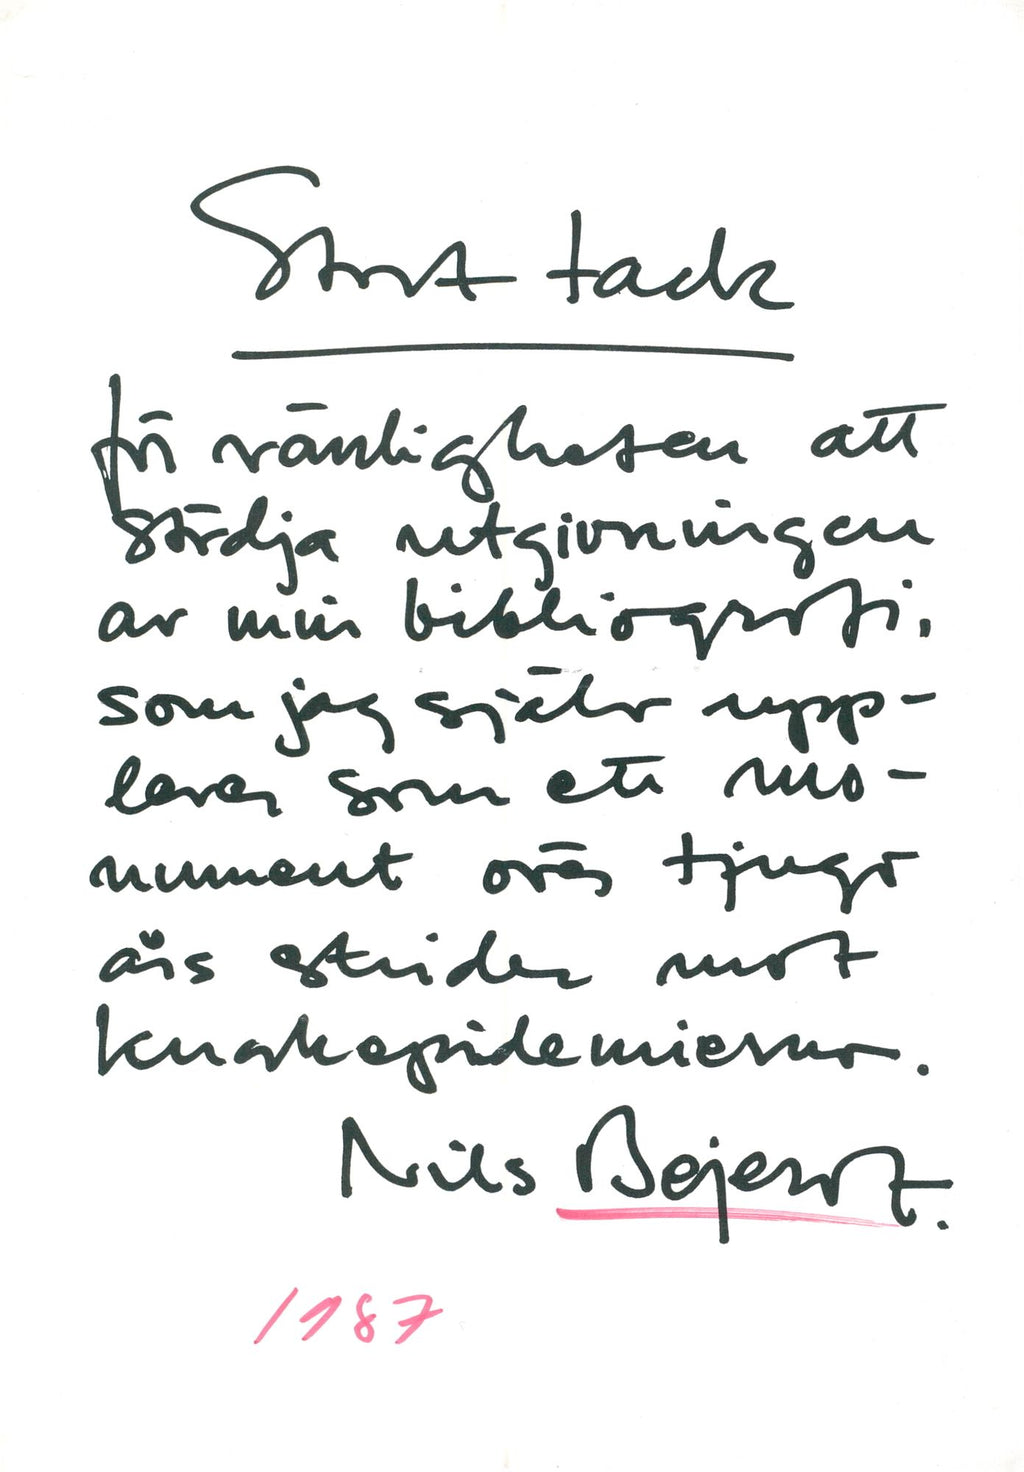 Stort tack
för vänligheten att
stödja utgivningen
av min bibliografi,
som jag själv upp-
lever som ett mo-
nument över tjugo
års strider mot
knarkepidemierna.
Nils Bejerot.
1987